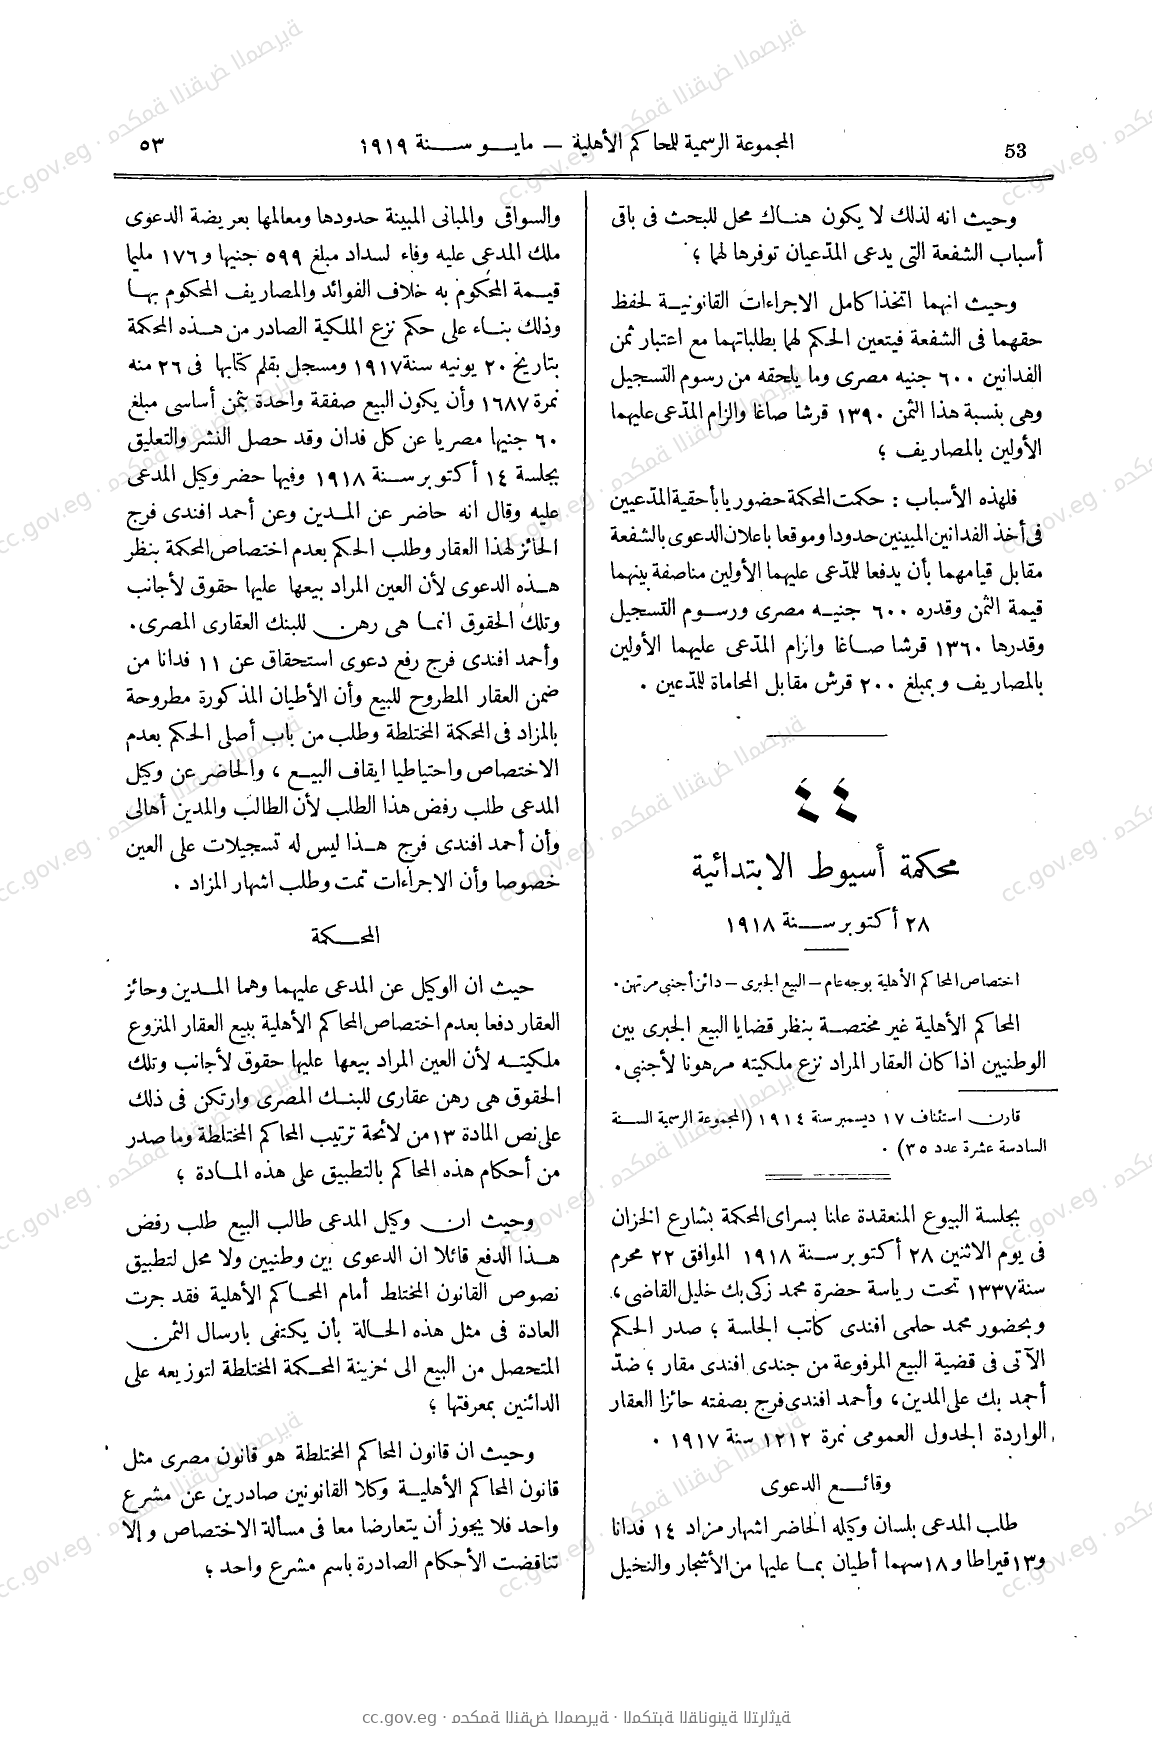 53
المجموعة الرسمية للمحاكم الأهلية — مايو سنة ١٩١٩
٥٣
وحيث انه لذلك لا يكون هناك محل للبحث فى باقى
أسباب الشفعة التى يدعى المدّعيان توفرها لهما ؛
وحيث انهما اتخذا كامل الاجراءات القانونية لحفظ
حقهما فى الشفعة فيتعين الحكم لهما بطلباتهما مع اعتبار ثمن
الفدانين ٦٠٠ جنيه مصرى وما يلحقه من رسوم التسجيل
وهى بنسبة هذا الثمن ١٣٩٠ قرشا صاغا والزام المدّعى عليهما
الأولين بالمصاريف ؛
فلهذه الأسباب : حكمت المحكمة حضوريا بأحقية المدّعيين
فى أخذ الفدانين المبينين حدودا وموقعا باعلان الدعوى بالشفعة
مقابل قيامهما بأن يدفعا للمدّعى عليهما الأولين مناصفة بينهما
قيمة الثمن وقدره ٦٠٠ جنيه مصرى ورسوم التسجيل
وقدرها ١٣٦٠ قرشا صاغا والزام المدّعى عليهما الأولين
بالمصاريف وبمبلغ ٢٠٠ قرش مقابل المحاماة للمدّعين .
٤٤
محكمة أسيوط الابتدائية
٢٨ أكتوبر سنة ١٩١٨
اختصاص المحاكم الأهلية بوجه عام – البيع الجبرى – دائن أجنبى مرتهن .
المحاكم الأهلية غير مختصة بنظر قضايا البيع الجبرى بين
الوطنيين اذا كان العقار المراد نزع ملكيته مرهونا لأجنبى .
قارن استئناف ١٧ ديسمبر سنة ١٩١٤ (المجموعة الرسمية السنة
السادسة عشرة عدد ٣٥) .
بجلسة البيوع المنعقدة علنا بسراى المحكمة بشارع الخزان
فى يوم الاثنين ٢٨ أكتوبر سنة ١٩١٨ الموافق ٢٢ محرم
سنة ١٣٣٧ تحت رياسة حضرة محمد زكى بك خليل القاضى ،
وبحضور محمد حلمى افندى كاتب الجلسة ؛ صدر الحكم
الآتى فى قضية البيع المرفوعة من جندى افندى مقار ؛ ضدّ
أحمد بك على المدين ، وأحمد افندى فرج بصفته حائزا العقار
الواردة الجدول العمومى نمرة ١٢١٢ سنة ١٩١٧ .
وقائع الدعوى
طلب المدعى بلسان وكيله الحاضر اشهار مزاد ١٤ فدانا
و١٣ قيراطا و١٨ سهما أطيان بما عليها من الأشجار والنخيل
والسواقى والمبانى المبينة حدودها ومعالمها بعريضة الدعوى
ملك المدعى عليه وفاء لسداد مبلغ ٥٩٩ جنيها و١٧٦ مليما
قيمة المحكوم به خلاف الفوائد والمصاريف المحكوم بها
وذلك بناء على حكم نزع الملكية الصادر من هذه المحكمة
بتاريخ ٢٠ يونيه سنة ١٩١٧ ومسجل بقلم كتابها فى ٢٦ منه
نمرة ١٦٨٧ وأن يكون البيع صفقة واحدة بثمن أساسى مبلغ
٦٠ جنيها مصريا عن كل فدان وقد حصل النشر والتعليق
بجلسة ١٤ أكتوبر سنة ١٩١٨ وفيها حضر وكيل المدعى
عليه وقال انه حاضر عن المدين وعن أحمد افندى فرج
الحائز لهذا العقار وطلب الحكم بعدم اختصاص المحكمة بنظر
هذه الدعوى لأن العين المراد بيعها عليها حقوق لأجانب
وتلك الحقوق انما هى رهن للبنك العقارى المصرى .
وأحمد افندى فرج رفع دعوى استحقاق عن ١١ فدانا من
ضمن العقار المطروح للبيع وأن الأطيان المذكورة مطروحة
بالمزاد فى المحكمة المختلطة وطلب من باب أصلى الحكم بعدم
الاختصاص واحتياطيا ايقاف البيع ، والحاضر عن وكيل
المدعى طلب رفض هذا الطلب لأن الطالب والمدين أهالى
وأن أحمد افندى فرج هذا ليس له تسجيلات على العين
خصوصا وأن الاجراءات تمت وطلب اشهار المزاد .
المحكمة
حيث ان الوكيل عن المدعى عليهما وهما المدين وحائز
العقار دفعا بعدم اختصاص المحاكم الأهلية ببيع العقار المنزوع
ملكيته لأن العين المراد بيعها عليها حقوق لأجانب وتلك
الحقوق هى رهن عقارى للبنك المصرى وارتكن فى ذلك
على نص المادة ١٣ من لائحة ترتيب المحاكم المختلطة وما صدر
من أحكام هذه المحاكم بالتطبيق على هذه المادة ؛
وحيث ان وكيل المدعى طالب البيع طلب رفض
هذا الدفع قائلا ان الدعوى بين وطنيين ولا محل لتطبيق
نصوص القانون المختلط أمام المحاكم الأهلية فقد جرت
العادة فى مثل هذه الحالة بأن يكتفى بارسال الثمن
المتحصل من البيع الى خزينة المحكمة المختلطة لتوزيعه على
الدائنين بمعرفتها ؛
وحيث ان قانون المحاكم المختلطة هو قانون مصرى مثل
قانون المحاكم الأهلية وكلا القانونين صادرين عن مشرع
واحد فلا يجوز أن يتعارضا معا فى مسألة الاختصاص والا
تناقضت الأحكام الصادرة باسم مشرع واحد ؛
cc.gov.eg · محكمة النقض المصرية · المكتبة القانونية التراثية